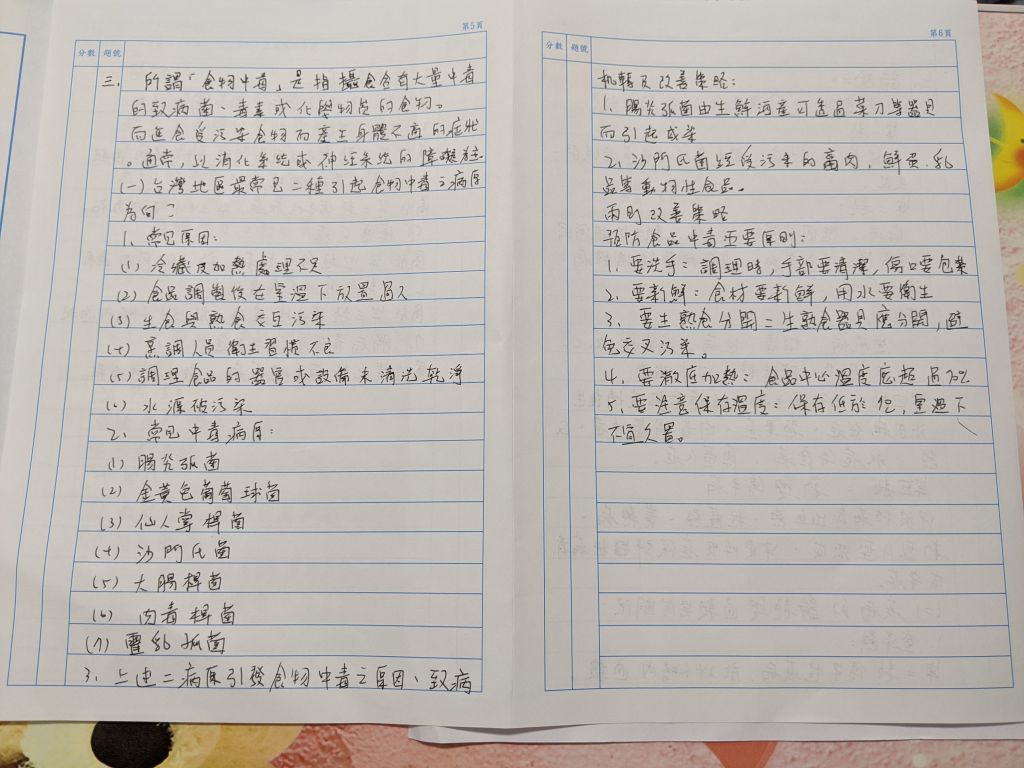 第5頁
分數 題號
三. 所謂「食物中毒」是指攝食含有大量中毒
的致病菌、毒素或化學物質的食物。
而進食受污染食物而產生身體不適的症狀
。通常,以消化系統或神經系統的障礙為主
(一)台灣地區最常見二種引起食物中毒之病原
為何?
1. 常見原因:
(1) 冷藏及加熱處理不足
(2) 食品調製後在室溫下放置過久
(3) 生食與熟食交互污染
(4) 烹調人員衛生習慣不良
(5) 調理食品的器官或設備未清洗乾淨
(6) 水源被污染
2. 常見中毒病原:
(1) 腸炎弧菌
(2) 金黃色葡萄球菌
(3) 仙人掌桿菌
(4) 沙門氏菌
(5) 大腸桿菌
(6) 肉毒桿菌
(7) 霍亂弧菌
3. 上述二病原引發食物中毒之原因、致病
第6頁
分數 題號
機轉及改善策略:
1. 腸炎弧菌由生鮮海產可透過菜刀等器具
而引起感染
2. 沙門氏菌經受污染的禽肉,鮮蛋、乳
品等動物性食品。
兩則改善策略
預防食品中毒五要原則:
1. 要洗手:調理時,手部要清潔,傷口要包紮
2. 要新鮮:食材要新鮮,用水要衛生
3. 要生熟食分開:生熟食器具應分開,避
免交叉污染。
4. 要澈底加熱:食品中心溫度應超過70℃
5. 要注意保存溫度:保存低於7℃,室溫下
不宜久置。